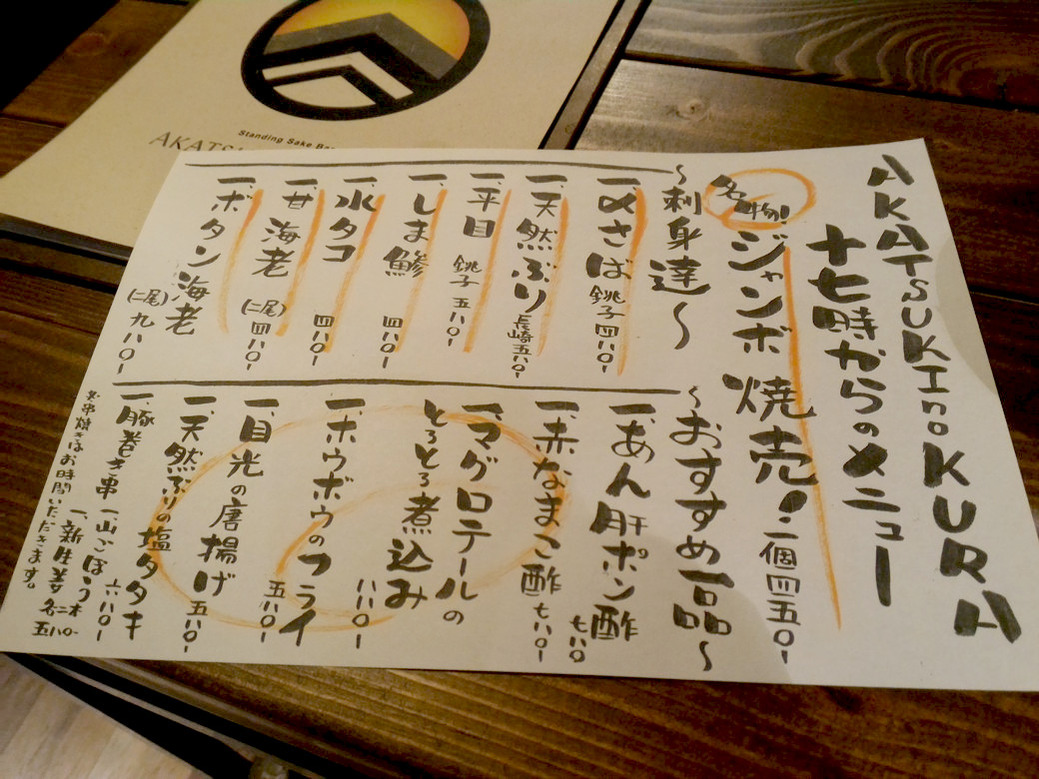 AKATSUKI no KURA
十七時からのメニュー
名物!
ジャンボ焼売!二個四五〇-
〜刺身達〜
一、〆さば 銚子 四八〇-
一、天然ぶり 長崎 五八〇-
一、平目 銚子 五八〇-
一、しま鯵 四八〇-
一、水タコ 四八〇-
一、甘海老(二尾)四八〇-
一、ボタン海老
(二尾)九八〇-
〜おすすめ一品〜
一、あん肝ポン酢
七八〇
一、赤なまこ酢 七八〇-
一、マグロテールの
とろとろ煮込み
八八〇-
一、ホウボウのフライ
五八〇-
一、目光の唐揚げ 五八〇-
一、天然ぶりの塩タタキ
六八〇-
一、豚巻き串 一山ごぼう
一新生姜 各二本 五八〇-
※串焼きはお時間いただきます。
Standing Sake Ba
AKATS